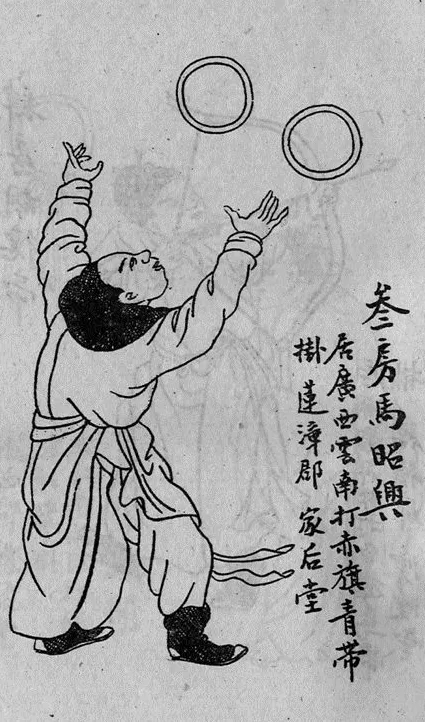 叁房馬昭興
居廣西雲南打赤旗青帶
掛蓮漳郡 家后堂